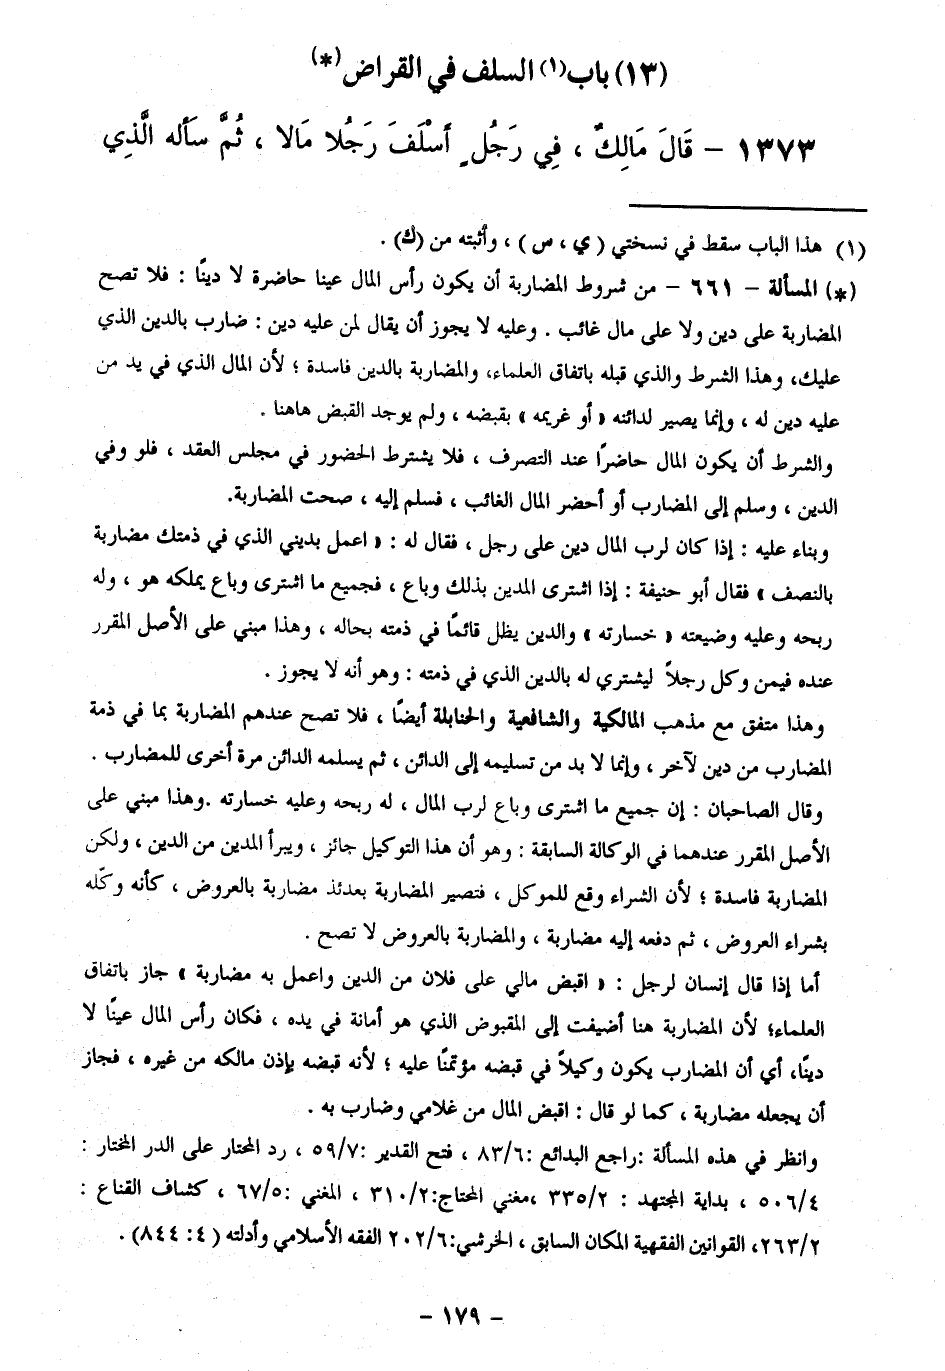 (١٣) باب(١) السلف في القراض(*)
١٣٧٣ – قَالَ مَالِكٌ ، فِي رَجُلٍ أَسْلَفَ رَجُلا مَالا ، ثُمَّ سَأَله الَّذِي
(١) هذا الباب سقط في نسختي ( ي ، س ) ، وأثبته من (ك) .
(*) المسألة – ٦٦١ – من شروط المضاربة أن يكون رأس المال عينا حاضرة لا دينًا : فلا تصح
المضاربة على دين ولا على مال غائب . وعليه لا يجوز أن يقال لمن عليه دين : ضارب بالدين الذي
عليك، وهذا الشرط والذي قبله باتفاق العلماء، والمضاربة بالدين فاسدة ؛ لأن المال الذي في يد من
عليه دين له ، وإنما يصير لدائنه « أو غريمه » بقبضه ، ولم يوجد القبض هاهنا .
والشرط أن يكون المال حاضرًا عند التصرف ، فلا يشترط الحضور في مجلس العقد ، فلو وفي
الدين ، وسلم إلى المضارب أو أحضر المال الغائب ، فسلم إليه ، صحت المضاربة.
وبناء عليه : إذا كان لرب المال دين على رجل ، فقال له : « اعمل بديني الذي في ذمتك مضاربة
بالنصف » فقال أبو حنيفة : إذا اشترى المدين بذلك وباع ، فجميع ما اشترى وباع يملكه هو ، وله
ربحه وعليه وضيعته « خسارته » والدين يظل قائمًا في ذمته بحاله ، وهذا مبني على الأصل المقرر
عنده فيمن وكل رجلاً ليشتري له بالدين الذي في ذمته : وهو أنه لا يجوز .
وهذا متفق مع مذهب المالكية والشافعية والحنابلة أيضًا ، فلا تصح عندهم المضاربة بما في ذمة
المضارب من دين لآخر ، وإنما لا بد من تسليمه إلى الدائن ، ثم يسلمه الدائن مرة أخرى للمضارب .
وقال الصاحبان : إن جميع ما اشترى وباع لرب المال ، له ربحه وعليه خسارته .وهذا مبني على
الأصل المقرر عندهما في الوكالة السابقة : وهو أن هذا التوكيل جائز ، ويبرأ المدين من الدين ، ولكن
المضاربة فاسدة ؛ لأن الشراء وقع للموكل ، فتصير المضاربة بعدئذ مضاربة بالعروض ، كأنه وكّله
بشراء العروض ، ثم دفعه إليه مضاربة ، والمضاربة بالعروض لا تصح .
أما إذا قال إنسان لرجل : « اقبض مالي على فلان من الدين واعمل به مضاربة » جاز باتفاق
العلماء؛ لأن المضاربة هنا أضيفت إلى المقبوض الذي هو أمانة في يده ، فكان رأس المال عينًا لا
دينًا، أي أن المضارب يكون وكيلاً في قبضه مؤتمنًا عليه ؛ لأنه قبضه بإذن مالكه من غيره ، فجاز
أن يجعله مضاربة ، كما لو قال : اقبض المال من غلامي وضارب به .
وانظر في هذه المسألة :راجع البدائع :٨٣/٦ ، فتح القدير :٥٩/٧ ، رد المحتار على الدر المختار :
٥٠٦/٤ ، بداية المجتهد : ٣٣٥/٢ ،مغني المحتاج:٣١٠/٢ ، المغني :٦٧/٥ ، كشاف القناع :
٢٦٣/٢، القوانين الفقهية المكان السابق ، الخرشي:٢٠٢/٦ الفقه الأسلامي وأدلته ( ٤: ٨٤٤) .
– ١٧٩ –